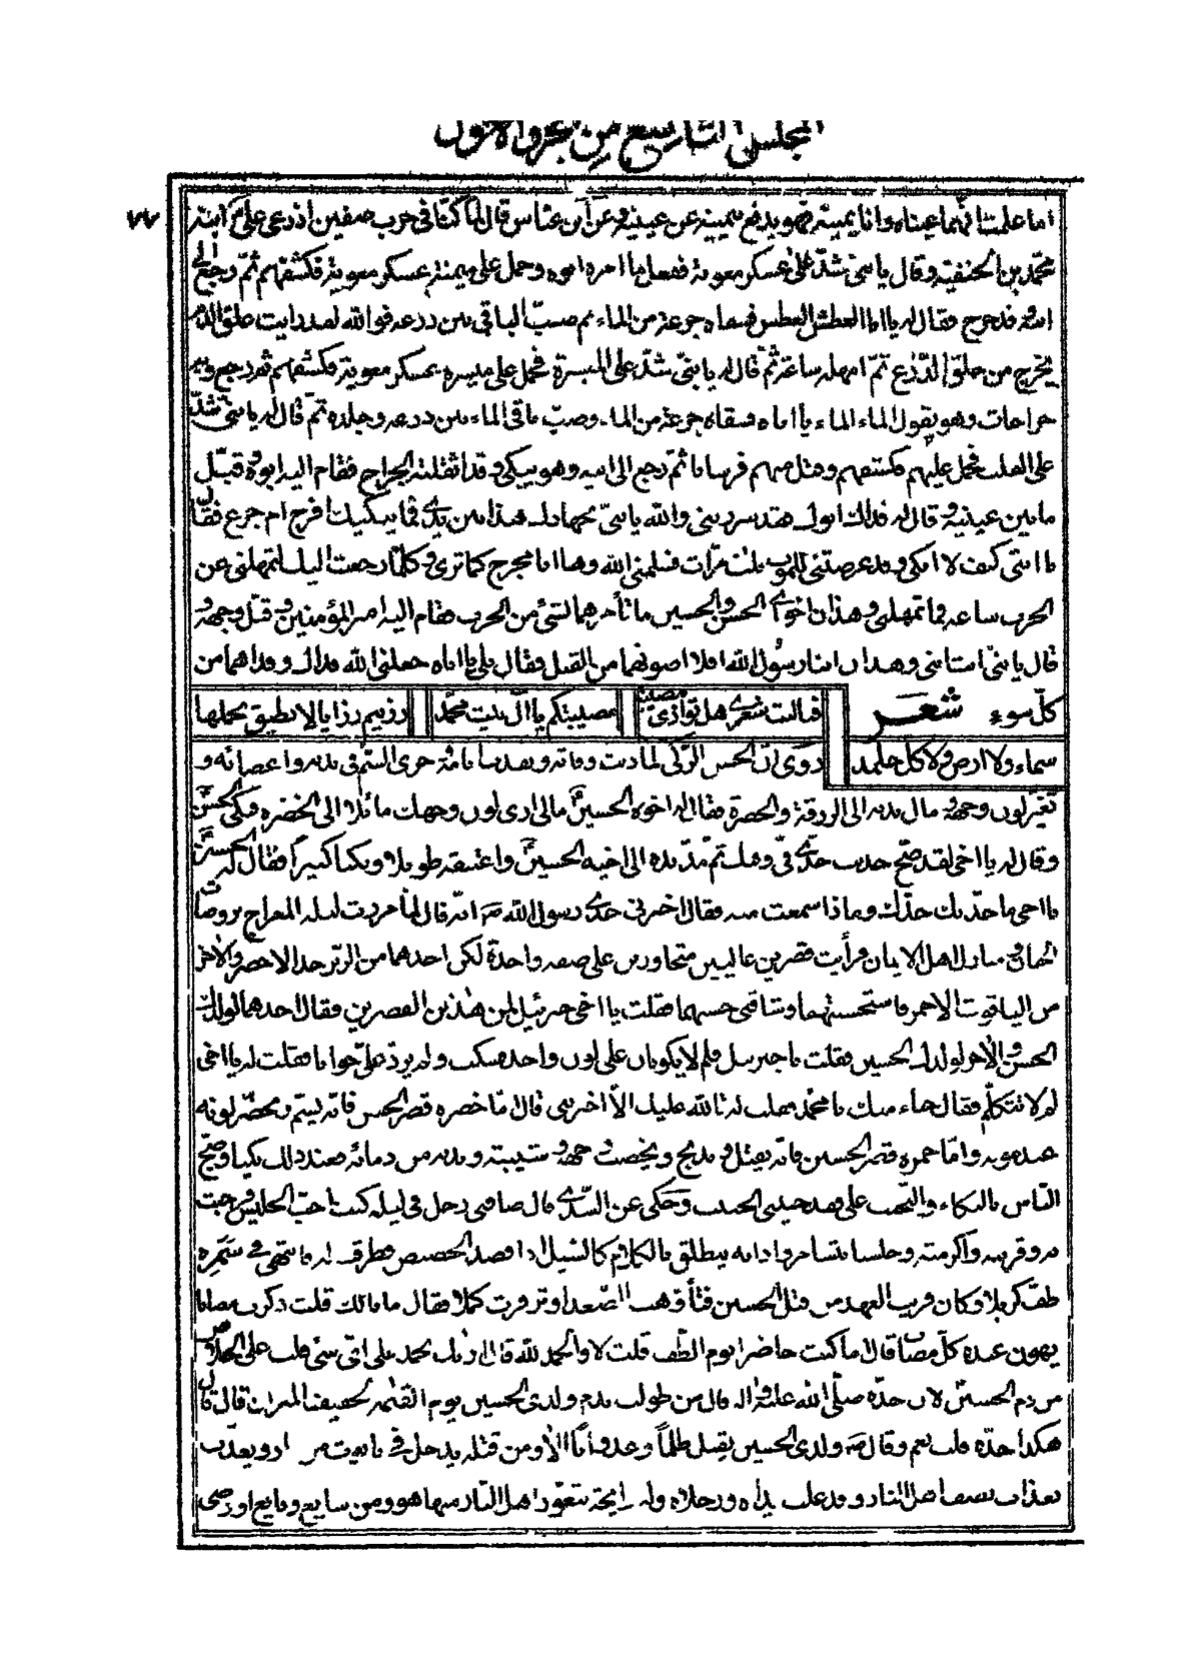 المجلس التاسع من الجزء الاول
٧٧
اما علمت انهما عيناه وانا يمينه فهو يدفع بيمينه عن عينيه وعن ابن عباس قال لما كنا في حرب صفين اذ دعى علي ابنه
محمد بن الحنفية وقال يا بني شد على عسكر معوية ففعل ما امره ابوه وحمل على ميمنة عسكر معوية فكشفهم ثم رجع الى
ابيه وقد جرح فقال له يا ابا العطش العطش فسقاه جرعة من الماء ثم صب الباقي بين درعه فوالله لقد رايت علق الدم
يخرج من حلق الدرع ثم امهله ساعة ثم قال له يا بني شد على الميسرة فحمل على ميسرة عسكر معوية فكشفهم ثم رجع وبه
جراحات وهو يقول الماء الماء يا اباه فسقاه جرعة من الماء وصب باقي الماء بين درعه وجلده ثم قال له يا بني شد
على القلب فحمل عليهم فكشفهم وقتل منهم فرسانا ثم رجع الى ابيه وهو يبكي وقد اثقلته الجراح فقام اليه ابوه وقبل
ما بين عينيه وقال له فداك ابوك فقد سررتني والله يا بني بجهادك هذا بين يدي فما يبكيك افرح ام جزع فقال
يا ابتي كيف لا ابكي وقد عرضتني للموت ثلث مرات فسلمني الله وها انا مجرح كما ترى وكلما رجعت اليك لتمهلني عن
الحرب ساعة فما تمهلني وهذان اخواي الحسن والحسين ما تأمرهما بشئ من الحرب فقام اليه امير المؤمنين وقبل وجهه و
قال يا بني انت ابني وهذان ابنا رسول الله افلا اصونهما من القتل فقال بلى يا اباه جعلني الله فداك وفداهما من
كل سوء شعر فيا ليت شعري هل توازي مصيبة مصيبتكم يا آل بيت محمد رزيتم رزايا لا تطيق بحملها
سماء ولا ارض ولا كل جلمد روي ان الحسن الزكي لما دنت وفاته ونفدت ايامه جرى السم في بدنه واعضائه و
تغير لون وجهه ومال بدنه الى الزرقة والخضرة فقال له اخوه الحسين مالي ارى لون وجهك مائلا الى الخضره فبكى الحسن
وقال له يا اخي لقد صح حديث جدي في وفيك ثم مد يده الى اخيه الحسين واعتنقه طويلا وبكيا كثيرا فقال له الحسين
يا اخي ما حدثك جدك وماذا سمعت منه فقال اخبرني جدي رسول الله ص انه قال لما مررت ليلة المعراج بروضات
الجنان ومنازل اهل الايمان فرأيت قصرين عاليين متجاورين على صفة واحدة لكن احدهما من الزبرجد الاخضر والاخر
من الياقوت الاحمر فاستحسنتهما وشاقني حسنهما فقلت يا اخي جبرئيل لمن هذين القصرين فقال احدهما لولدك
الحسن والاخر لولدك الحسين فقلت يا جبرئيل فلم لا يكونان على لون واحد فسكت ولم يرد علي جوابا فقلت له يا اخي
لم لا تتكلم فقال حياء منك يا محمد فقلت له بالله عليك الا اخبرتني قال اما خضرة قصر الحسن فانه يسم ويخضر لونه
عند موته واما حمرة قصر الحسين فانه يقتل ويذبح ويخضب وجهه وشيبته وبدنه من دمائه فعند ذلك بكيا وضج
الناس بالبكاء والنحيب على فقد حبيبي الحبيب وحكى عن السدي قال ضافني رجل في ليلة كنت احب الجليس فرحبت
به وقربته واكرمته وجلسنا نتسامر واذا به ينطلق بالكلام كالسيل اذا قصد الحضيض فطرقت له فانتهى في سمره
طف كربلا وكان قريب العهد من قتل الحسين فتأوهت الصعدا وتزفرت كملا فقال ما بالك قلت ذكرت مصابا
يهون عنده كل مصاب قال ما كنت حاضرا يوم الطف قلت لا والحمد لله قال اراك تحمد على اي شئ قلت على الخلاص
من دم الحسين لان جده صلى الله عليه واله قال من طولب بدم ولدي الحسين يوم القيمة لخفيف الميزان قال قال
هكذا جده قلت نعم وقال ص ولدي الحسين يقتل ظلما وعدوانا الا ومن قتله يدخل في تابوت من نار ويعذب
بعذاب نصف اهل النار وقد غلت يداه ورجلاه وله رايحة يتعوذ اهل النار منها هو ومن شايع وبايع او رضى